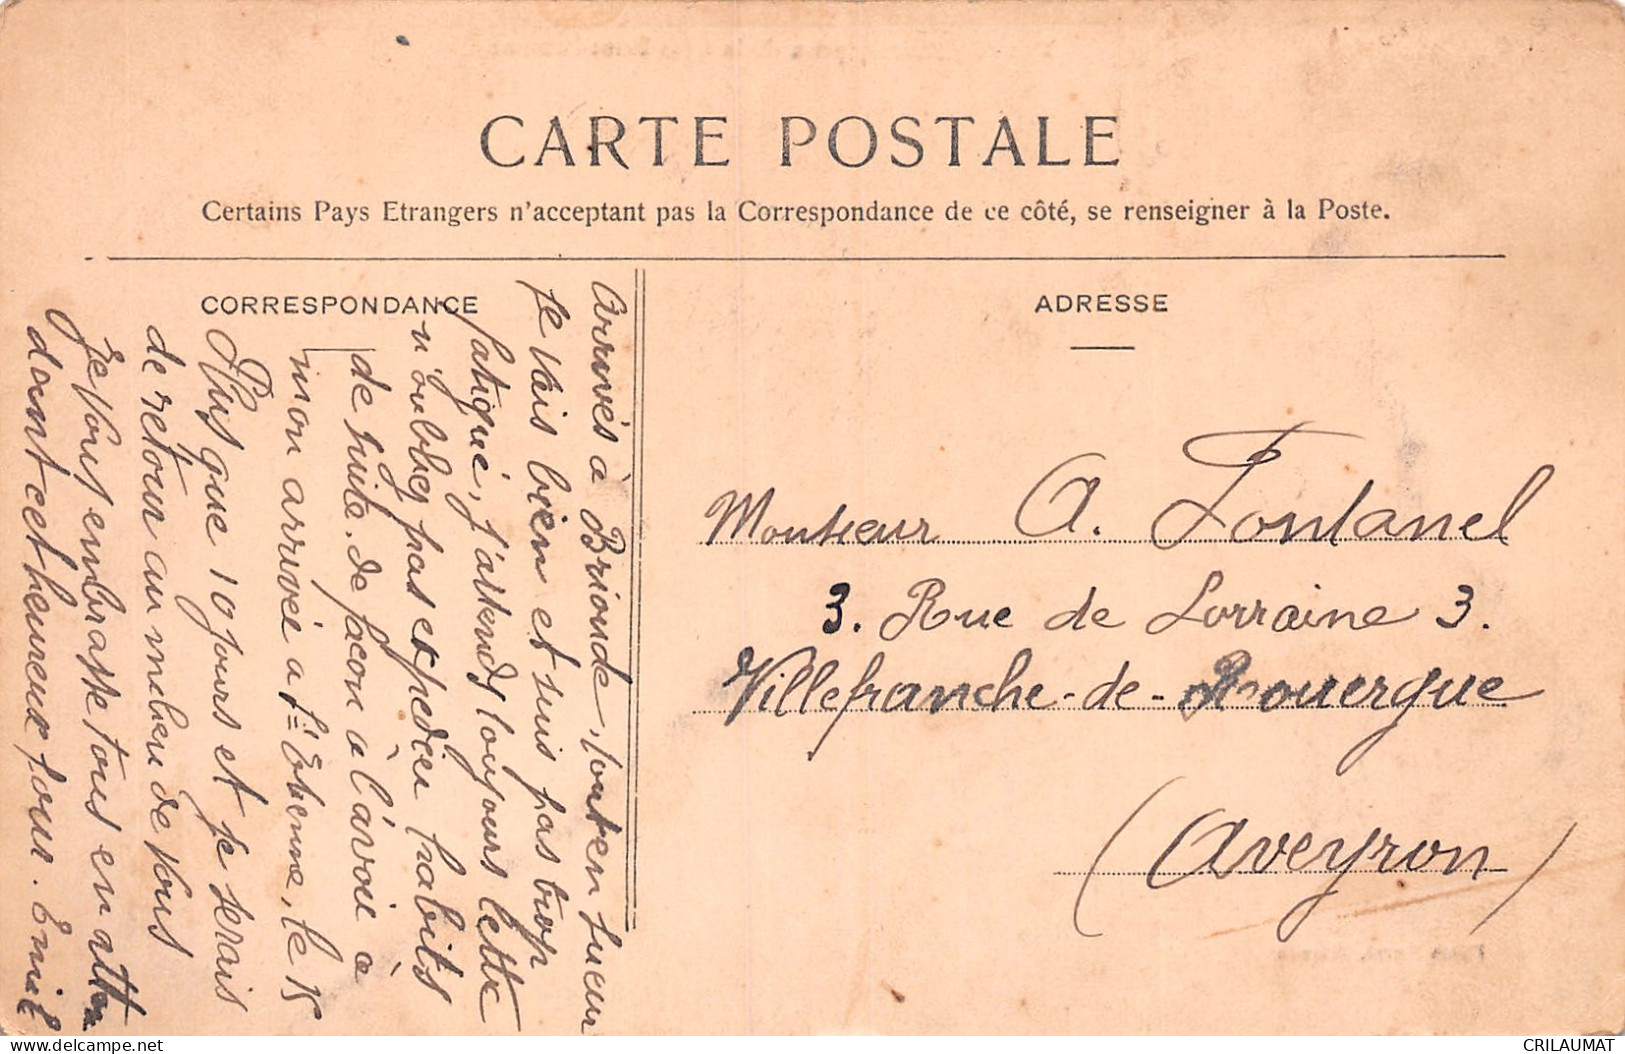 CARTE POSTALE
Certains Pays Etrangers n'acceptant pas la Correspondance de ce côté, se renseigner à la Poste.
CORRESPONDANCE
ADRESSE
Arrivés à Brioude, tout en sueur
je vais bien et suis pas trop
fatigué, j'attends toujours lettre
n'oubliez pas expédier habits
de suite. de façon à l'avoir à
mon arrivée à St Etienne, le 15
Plus que 10 jours et je serais
de retour au milieu de vous
Je vous embrasse tous en atten
dant cet heureux jour. Emile
Monsieur A. Fontanel
3. Rue de Lorraine 3.
Villefranche-de-Rouergue
(Aveyron)
CRILAUMAT